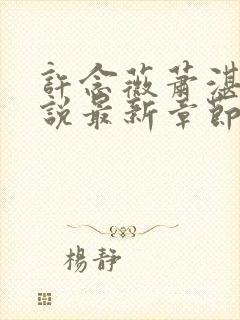 許念薇蕭湛
說最新章節
楊靜